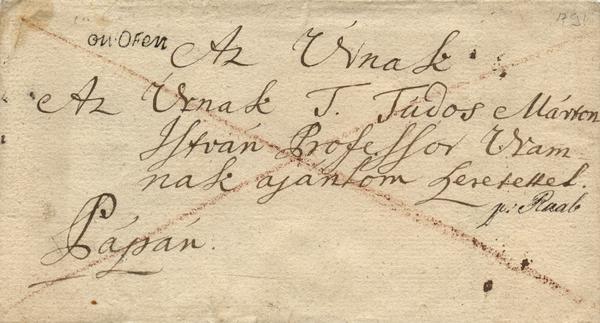 1791
ou·OFen
Az Úrnak
Az Úrnak T. Túdos Márton
István Professor Uram
nak ajánlom szeretettel.
p: Raab
Pápán.